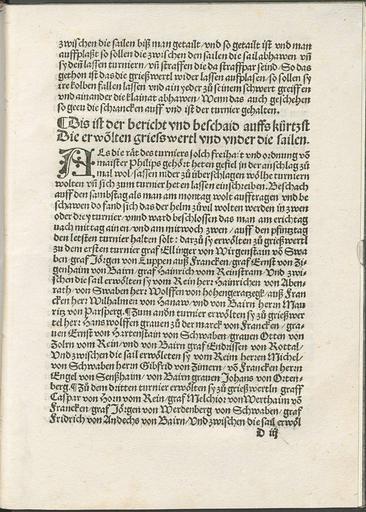 zwischen die sailen biß man getailt/vnd so getailt ist vnd man
auffplaßt so sollen die zwischen den sailen die sail abhawen vñ
zů den lassen turniern/ vñ straffen die da straffpar seind/ So das
gethon ist das die grießwertl wider lassen auffplasen/ so sollen sy
ire kolben fallen lassen vnd ain yeder zů seinem schwert greiffen
vnd ainander die klainat abhawen/ Wenn das auch geschehen
so geen die schrancken auff vnd ist der turnier gehalten.
¶Dis ist der bericht vnd beschaid auffs kürtzst
Die erwölten griesswertl vnd vnder die sailen.
Als die råt des turniers solch freihait vnd ordnung võ
maister Philips gehört heten gefiel in der anschlag zů
mal wol/ sassen nider zů überschlagen wölhe turniern
wolten vñ sich zum turnier het en lassen einschreiben. Beschach
auff den sambstag als man am montag wolt aufftragen vnd be
schawen do fand sich das der helm zůvil wolten werden in zwen
oder drey turnier/ vnnd ward beschlossen das man am erichtag
nach mittag ainen/ vnd am mitwoch zwen/ auff den pfintztag
den letsten turnier halten solt: dar zů sy erwölten zů grießwertl
zů dem ersten turnier graf Ellinger von Wirgenstain võ Swa
ben/ graf Jörgen von Luppen auß Francken/ graf Ernst von Zi
genhaim von Bairn/ graf Hainrich vom Reinstram/ Vnd zwi/
schen die sail erwölten sy vom Rein her: Hainrichen von Aben/
rath/ von Swaben her: Wolffen von hohengerattzegk/ auß Fran
cken her: Wilhalmen von Hanaw/ vnd von Bairn herrn Mau
ritz von Parsperg. ¶Zum anõrn turnier erwölten sy zů grießwer
tel her: Hans wolffen grauen zů der marck von Francken/ gra/
uen Ernst von Harrenstain von Schwaben/ grauen Otten von
Zolrn vom Rein/ vnd von Bairn graf Endrissen von Rottal/
Vnd zwischen die sail erwöleten sy vom Rein herren Michel/
von Schwaben herrn Gibfrid von Zimern/ võ Francken herrn
Engel von Senßhaim/ von Bairn grauen Johans von Orten/
berg. ¶Zů dem dritten turnier erwölten sy zů grießwertln graff
Caspar von Horn vom Rein/ graf Melchior von Werthaim võ
Francken/ graf Jörgen von Werdenberg von Schwaben/ graf
Fridrich von Andechs von Bairn/ Vnd zwischen die sail erwöl
D iij